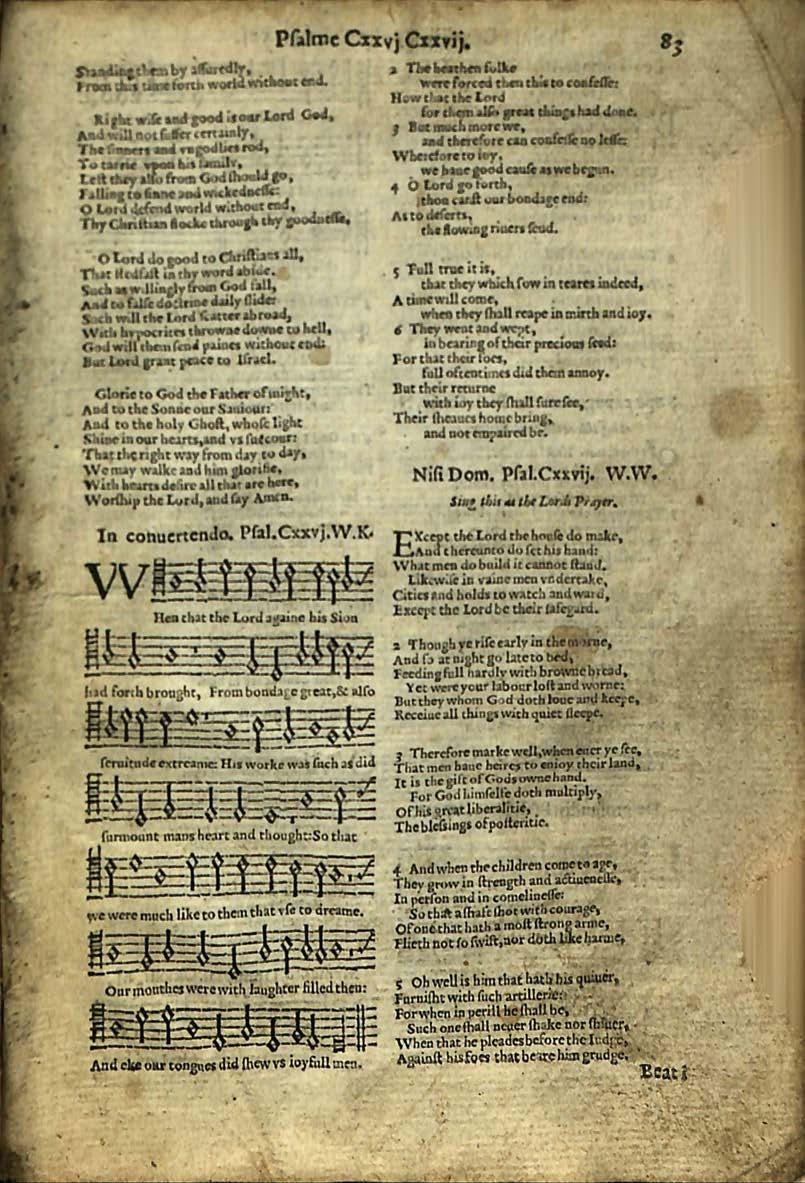 Pſalme Cxxvj Cxxvij.
83
Standing them by aſſuredly,
From this time forth world without end.
Right wiſe and good is our Lord God,
And will not ſuffer certainly,
The ſinners and vngodlies rod,
To tarrie vpon his family,
Leſt they alſo from God ſhould go,
Falling to ſinne and wickedneſſe:
O Lord defend world without end,
Thy Chriſtian flocke through thy goodneſſe,
O Lord do good to Chriſtians all,
That ſtedfaſt in thy word abide.
Such as willingly from God fall,
And to falſe doctrine daily ſlider
Such will the Lord ſcatter abroad,
With hypocrites throwne downe to hell,
God will them ſend paines without end:
But Lord grant peace to Iſrael.
Glorie to God the Father of might,
And to the Sonne our Sauiour:
And to the holy Ghoſt, whoſe light
Shine in our hearts, and vs ſuccour:
That the right way from day to day,
We may walke and him glorifie,
With hearts deſire all that are here,
Worſhip the Lord, and ſay Amen.
In conuertendo. Pſal.Cxxvj.W.K.
VV
Hen that the Lord againe his Sion
had forth brought, From bondage great,& alſo
ſeruitude extreame: His worke was ſuch as did
ſurmount mans heart and thought:So that
we were much like to them that vſe to dreame.
Our mouthes were with laughter filled then:
And eke our tongues did ſhew vs ioyfull men.
2 The heathen folke
were forced then this to confeſſe:
How that the Lord
for them alſo great things had done.
3 But much more we,
and therefore can confeſſe no leſſe:
Wherefore to ioy,
we haue good cauſe as we begun.
4 O Lord go forth,
thou canſt our bondage end:
As to deſerts,
the flowing riuers ſend.
5 Full true it is,
that they which ſow in teares indeed,
A time will come,
when they ſhall reape in mirth and ioy.
6 They went and wept,
in bearing of their precious ſeed:
For that their foes,
full oftentimes did them annoy.
But their returne
with ioy they ſhall ſure ſee,
Their ſheaues home bring,
and not empaired be.
Niſi Dom. Pſal.Cxxvij. W.W.
Sing this as the Lords Prayer.
EXcept the Lord the houſe do make,
And thereunto do ſet his hand:
What men do build it cannot ſtand.
Likewiſe in vaine men vndertake,
Cities and holds to watch and ward,
Except the Lord be their ſafegard.
2 Though ye riſe early in the morne,
And ſo at night go late to bed,
Feeding full hardly with browne bread,
Yet were your labour loſt and worne:
But they whom God doth loue and keepe,
Receiue all things with quiet ſleepe.
3 Therefore marke well,when euer ye ſee,
That men haue heires to enioy their land,
It is the gift of Gods owne hand.
For God himſelfe doth multiply,
Of his great liberalitie,
The bleſsings of poſteritie.
4 And when the children come to age,
They grow in ſtrength and actiueneſſe,
In perſon and in comelineſſe:
So that a ſhaft ſhot with courage,
Of one that hath a moſt ſtrong arme,
Flieth not ſo ſwift,nor doth like harme,
5 Oh well is him that hath his quiuer,
Furniſht with ſuch artillerie:
For when in perill he ſhall be,
Such one ſhall neuer ſhake nor ſhiuer,
When that he pleades before the Iudge,
Againſt his foes that beare him grudge.
Beati